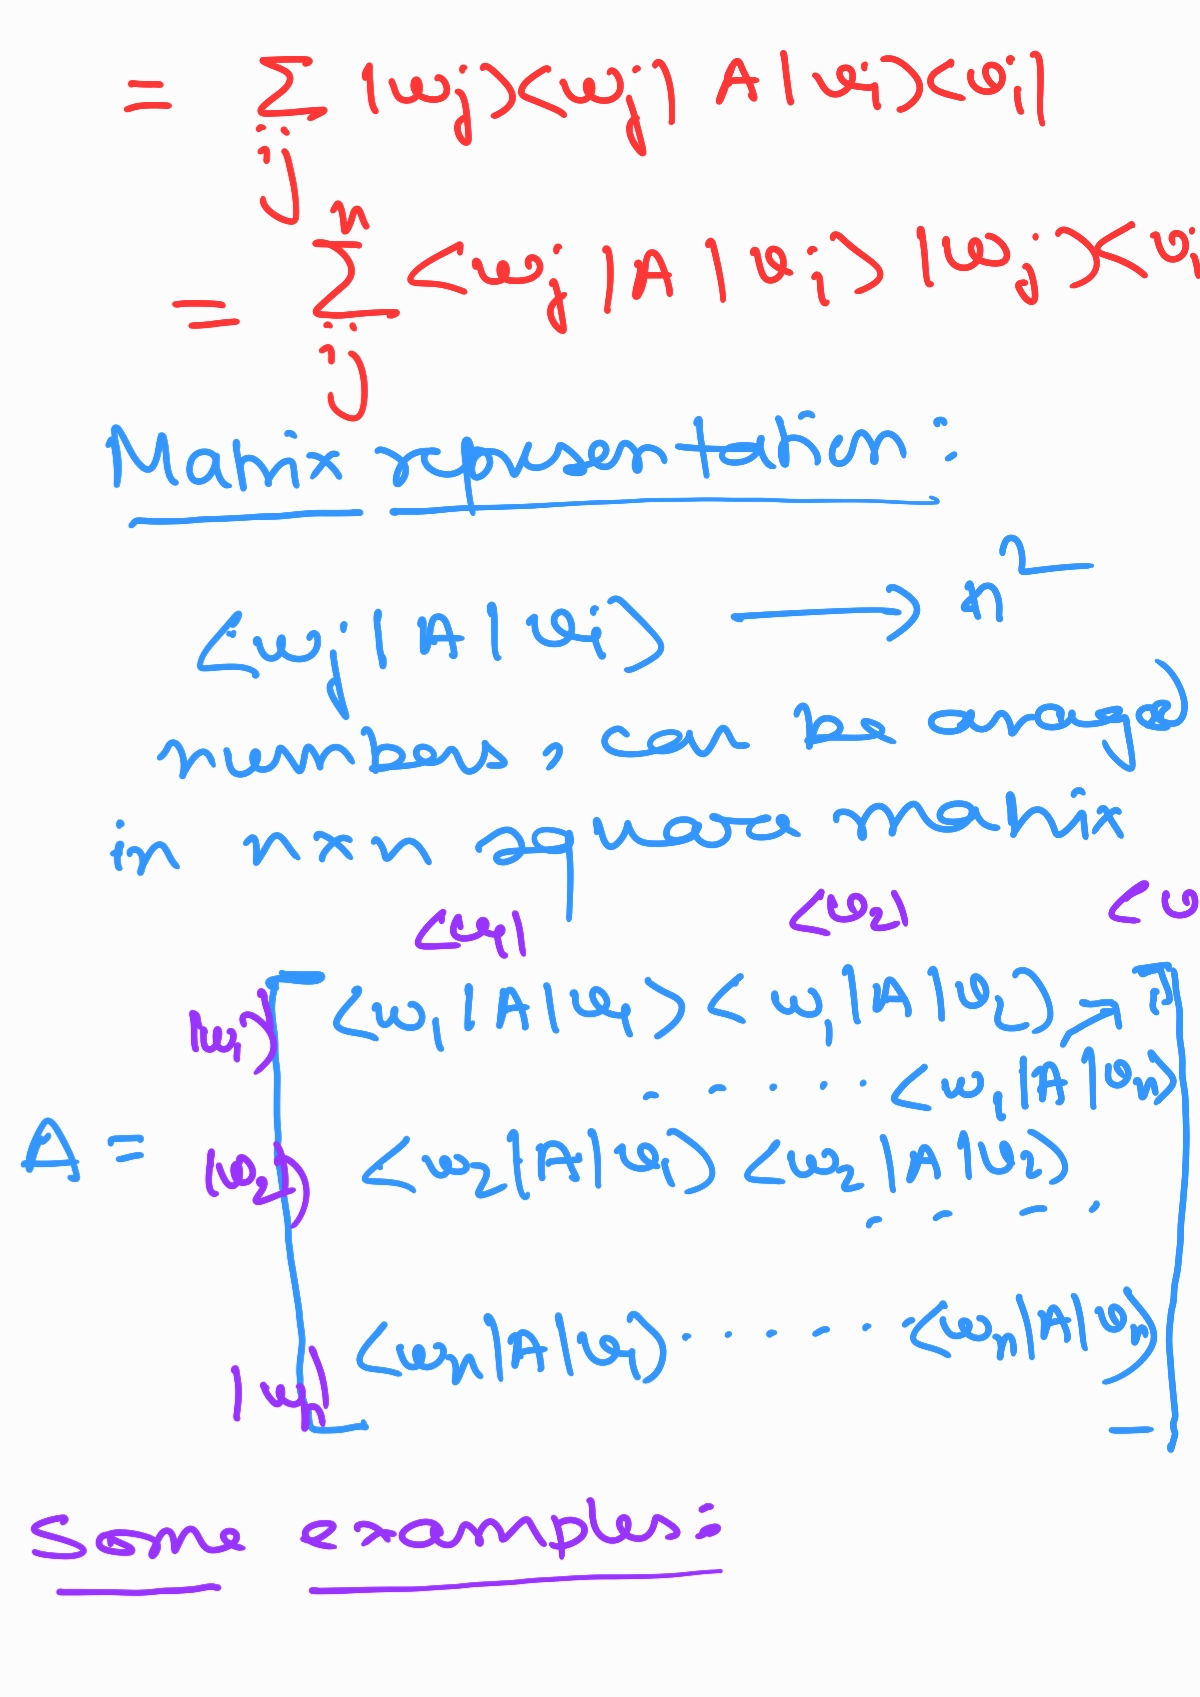 = Σ |wj><wj| A | vi><vi|
ij
n
= Σ <wj | A | vi> |wj><vi
ij
Matrix representation :
<wj | A | vi> ⟶ n²
numbers, can be aranged
in n×n square matrix
<v1| <v2| <v
|w1> <w1 | A | v1> < w1 | A | v2>
. . . . . <w1 | A | vn>
A = |w2> <w2 | A | v1> <w2 | A | v2>
. . . .
|wn> <wn | A | v1> . . . . . . <wn | A | vn>
Some examples: